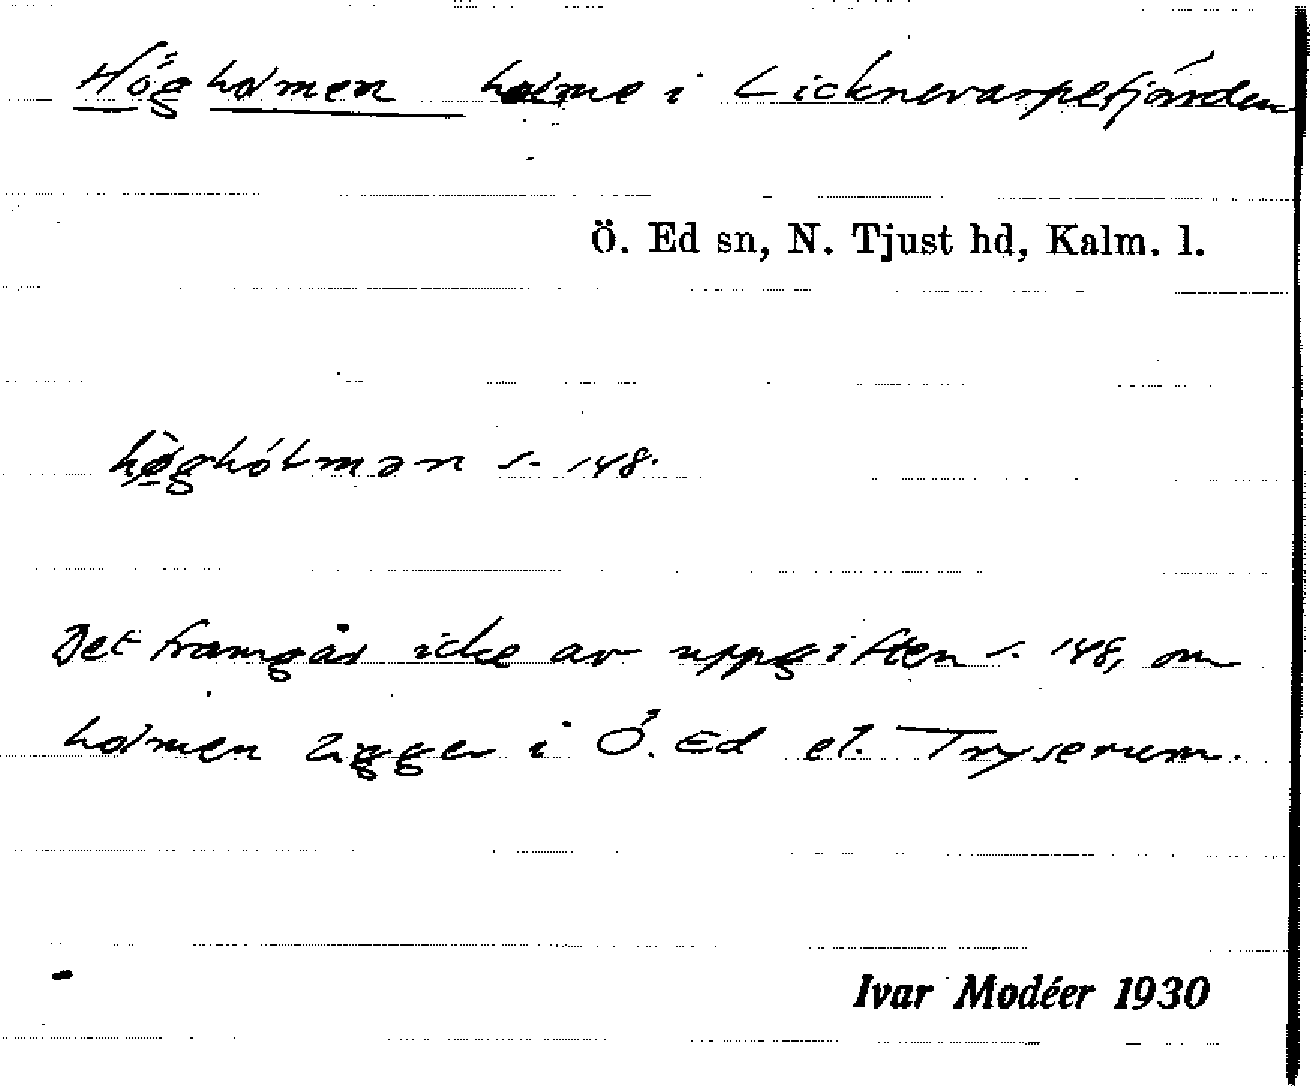 Högholmen holme i Licknevarpefjärden
Ö. Ed sn, N. Tjust hd, Kalm. l.
s. 148.
Det framgår icke av uppgiften s. 148, om
holmen ligger i Ö. Ed el. Tryserum.
Ivar Modéer 1930